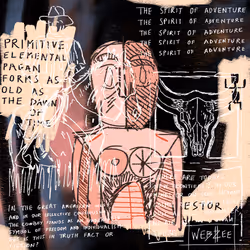 THE SPIRIT OF ADVENTURE
THE SPIRIT OF ADVENTURE
THE SPIRIT OF ADVENTURE
THE SPIRIT OF ADVENTURE
THE SPIRIT OF ADVENTURE
PRIMITIVE
ELEMENTAL
PAGAN
FORMS AS
OLD AS
THE DAWN
OF
TIME
IN THE GREAT AMERICAN
AND IN OUR COLLECTIVE
THE COWBOY STANDS AS A
SYMBOL OF FREEDOM AND INDIVIDUALISM
IS THIS IN TRUTH FACT OR
ARE THE
ESTOR
WEBZEE